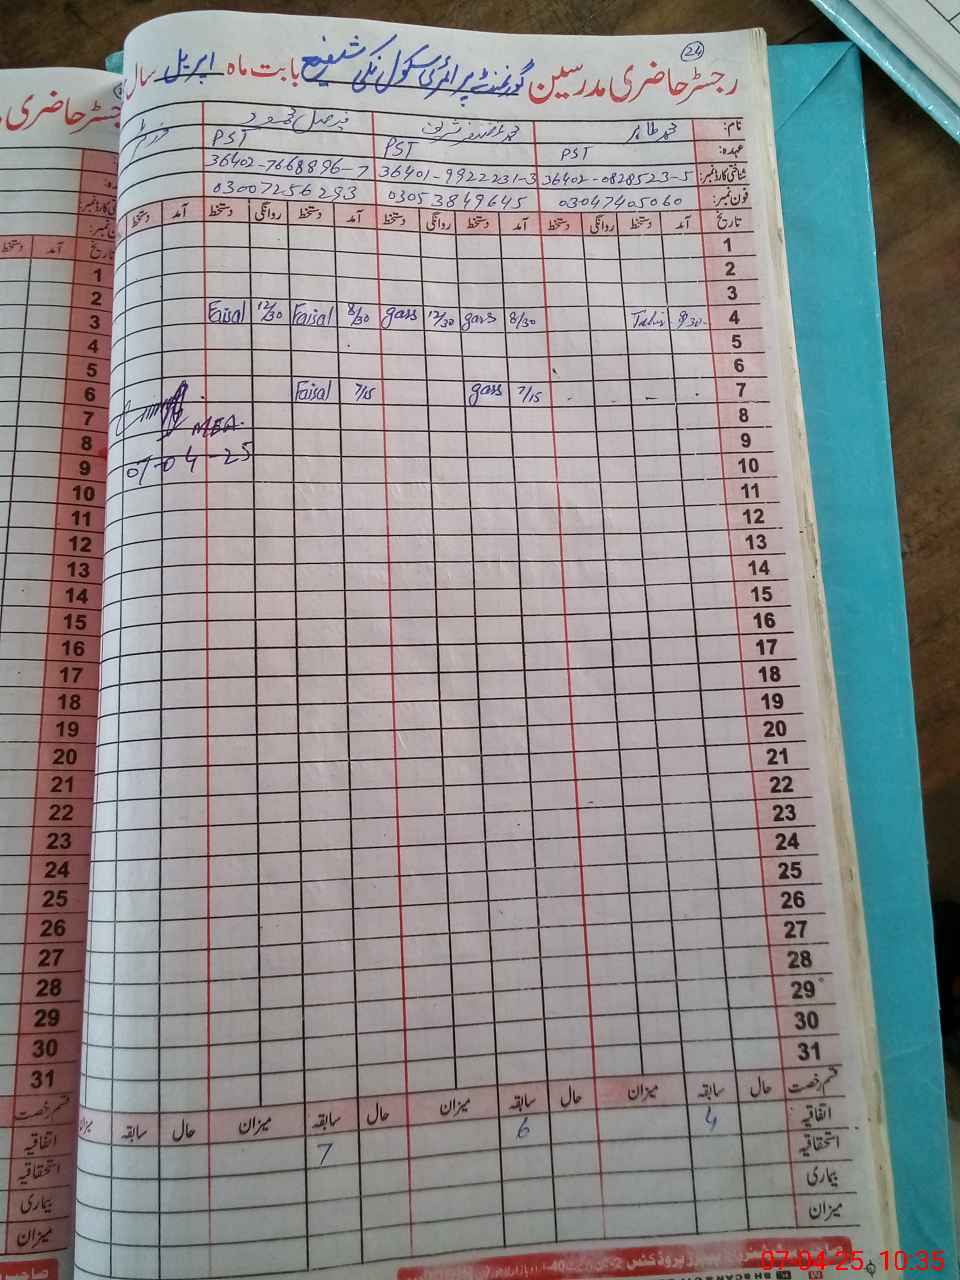 24
رجسٹر حاضری مدرسین گورنمنٹ پرائمری سکول نکی شفیع بابت ماہ اپریل سال
نام: محمد طاہر محمد غضنفر شریف فیصل محمود
عہدہ: PST PST PST
شناختی کارڈ نمبر: 36402-0828523-5 36401-9922231-3 36402-7668896-7
فون نمبر: 03047405060 03053849645 03007256293
تاریخ آمد دستخط روانگی دستخط آمد دستخط روانگی دستخط آمد دستخط روانگی دستخط آمد دستخط
1
2
3
4 8/30 Tahir 8/30 gass 12/30 gass 8/30 Faisal 12/30 Faisal
5
6
7 7/15 gass 7/15 Faisal
8
MEA.
9
07-04-25
10
11
12
13
14
15
16
17
18
19
20
21
22
23
24
25
26
27
28
29
30
31
قسم رخصت حال سابقہ میزان حال سابقہ میزان حال سابقہ میزان حال سابقہ
اتفاقیہ 4 6 7
استحقاقیہ
بیماری
میزان
رجسٹر حاضری
آمد دستخط
تاریخ
1
2
3
4
5
6
7
8
9
10
11
12
13
14
15
16
17
18
19
20
21
22
23
24
25
26
27
28
29
30
31
قسم رخصت
اتفاقیہ
استحقاقیہ
بیماری
میزان
07-04-25 10:35